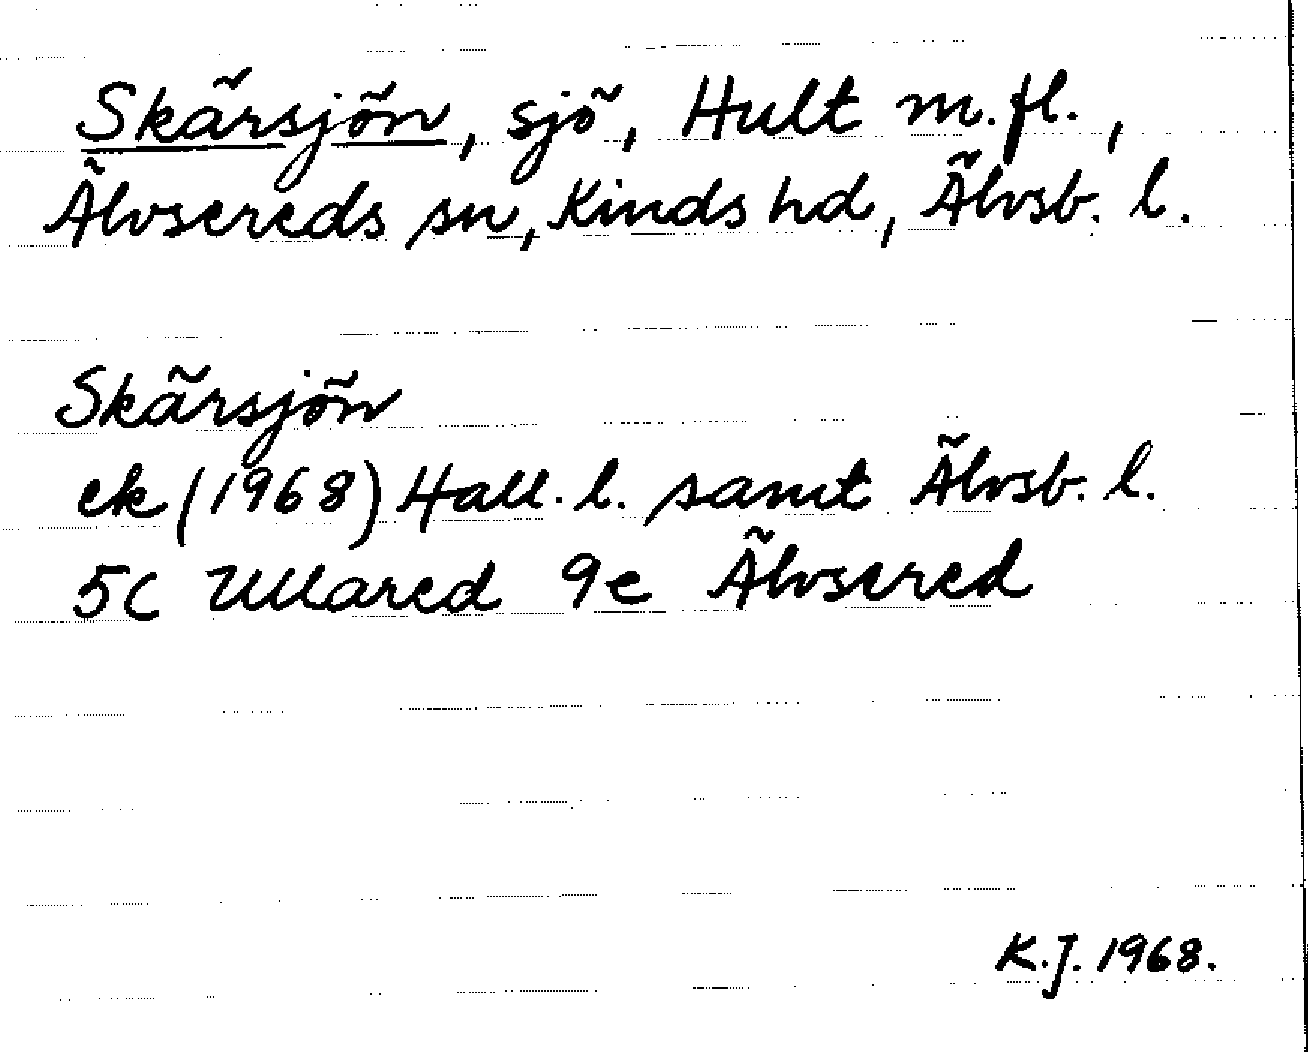 Skärsjön, sjö, Hult m.fl.,
Älvsereds sn, Kinds hd, Älvsb. l.
Skärsjön
ek (1968) Hall. l. samt Älvsb. l.
5C Ullared 9e Älvsered
K.J. 1968.